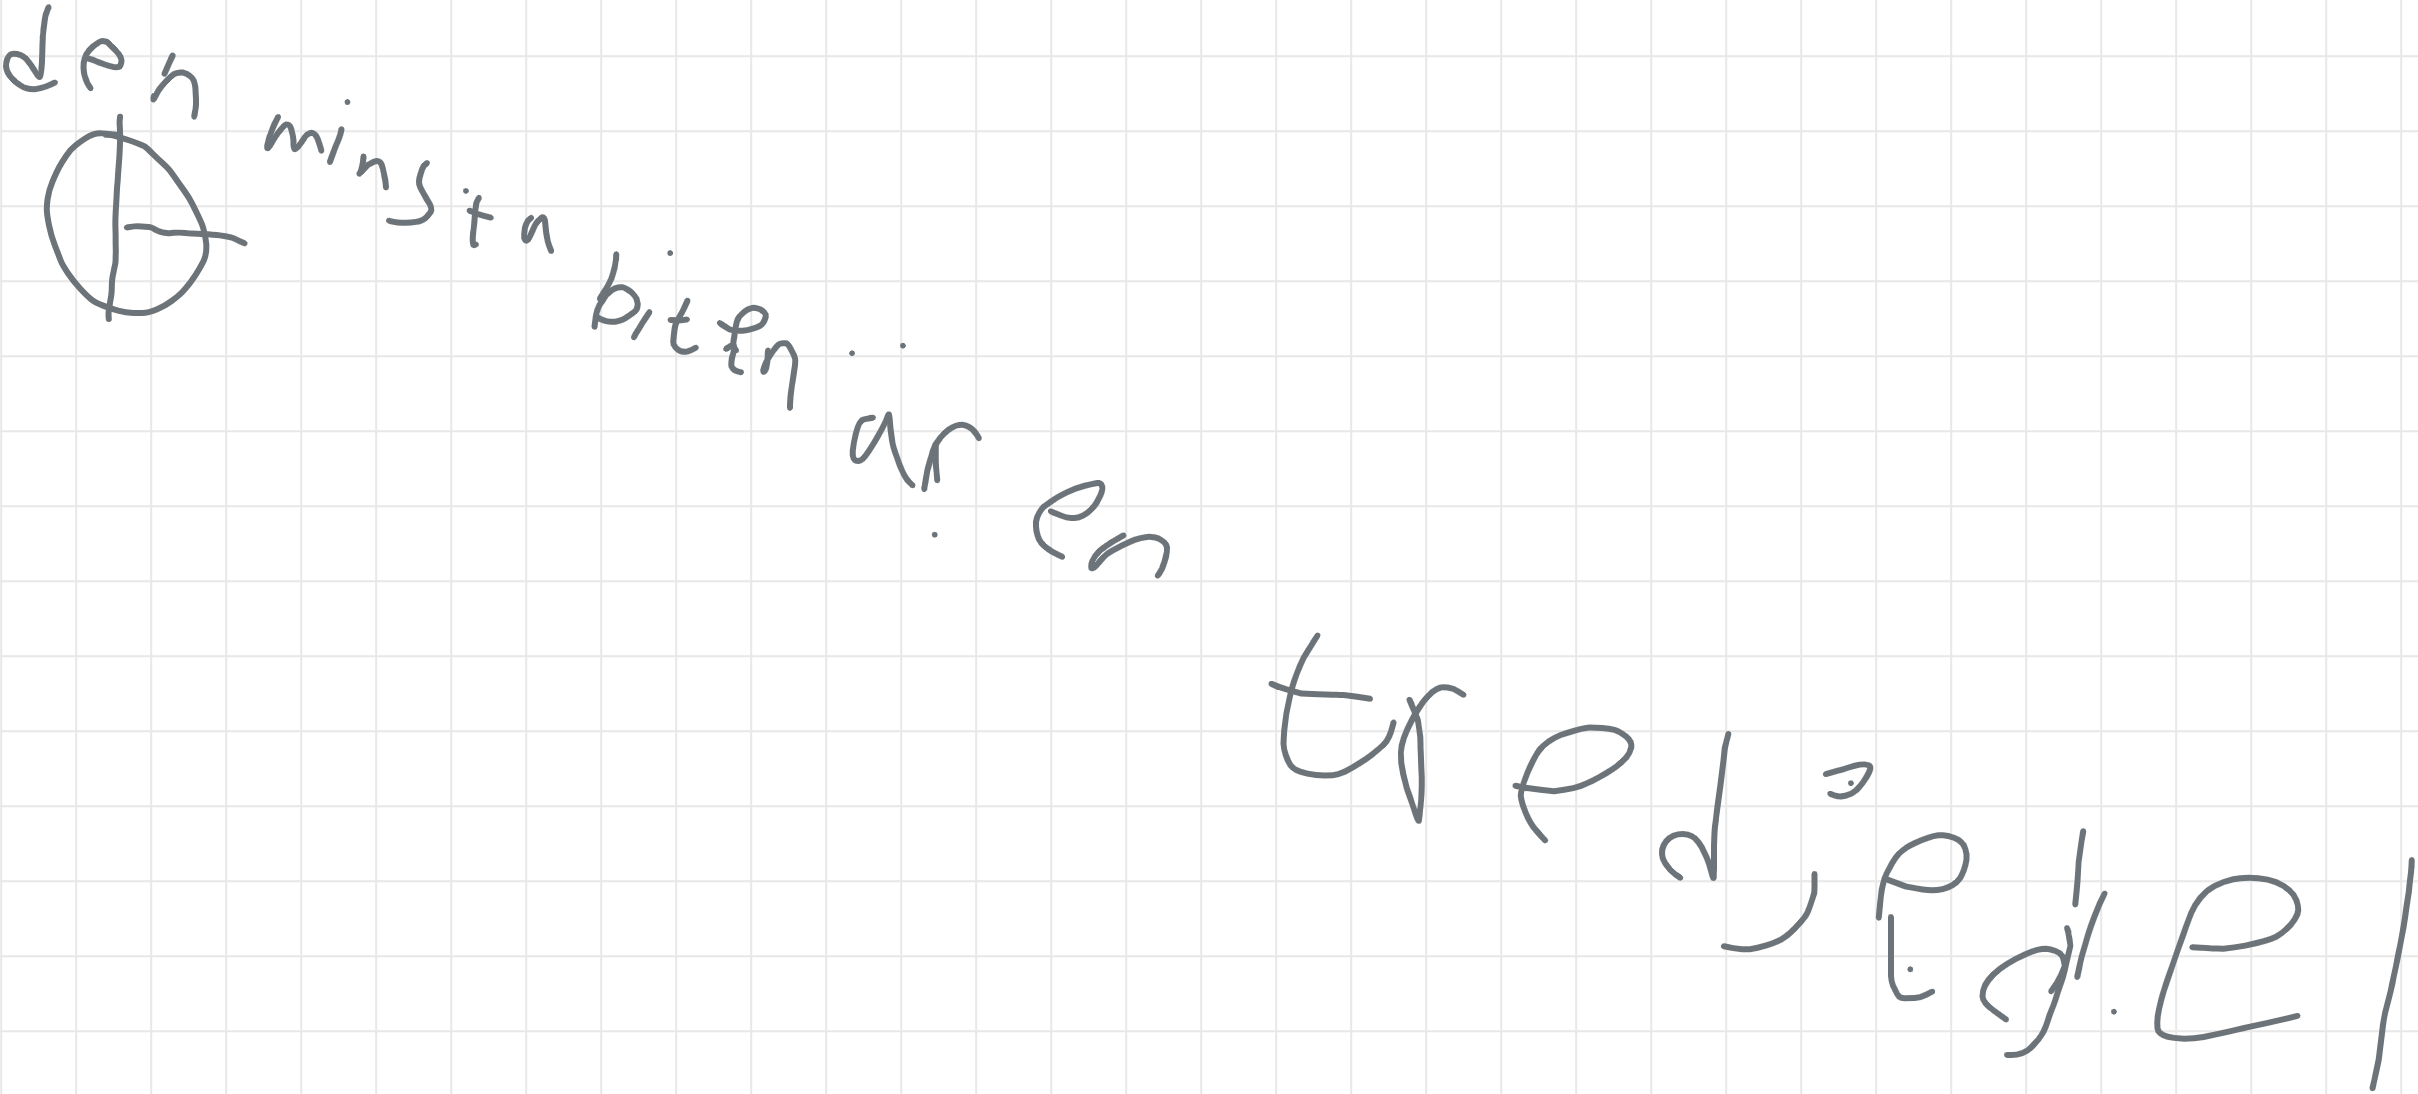 den minsta biten är en tredjedel